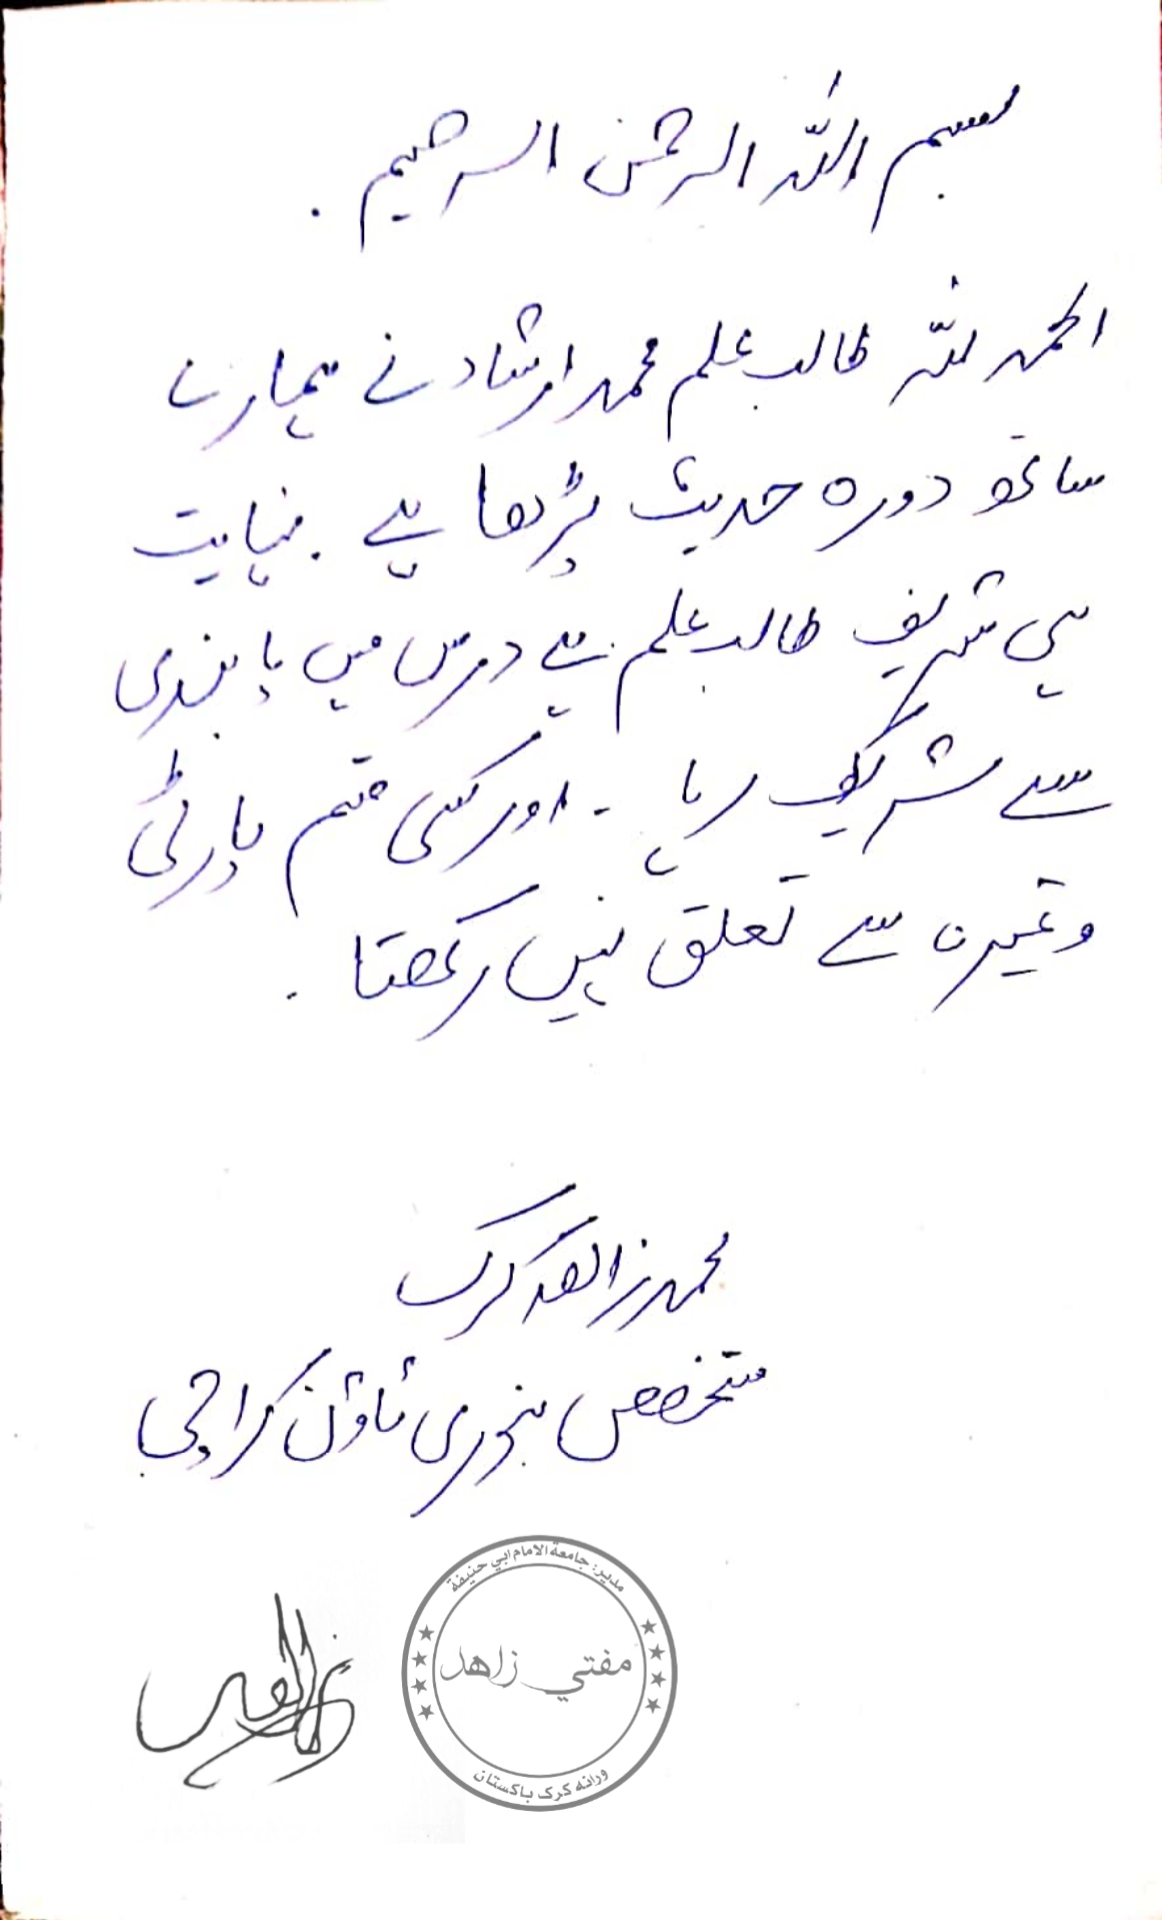 بسم اللہ الرحمن الرحیم .
الحمد للہ طالب علم محمد ارشاد نے ہمارے
ساتھ دورہ حدیث پڑھا ہے . نہایت
ہی شریف طالب علم ہے درس میں پابندی
سے شریک رہا - اور کسی قسم پارٹی
وغیرہ سے تعلق نہیں رکھتا .
محمد زاھد کرک
متخصص بنوری ٹاؤن کراچی
مدیر: جامعة الامام ابي حنيفة
مفتي زاهد
ورانه کرک پاکستان